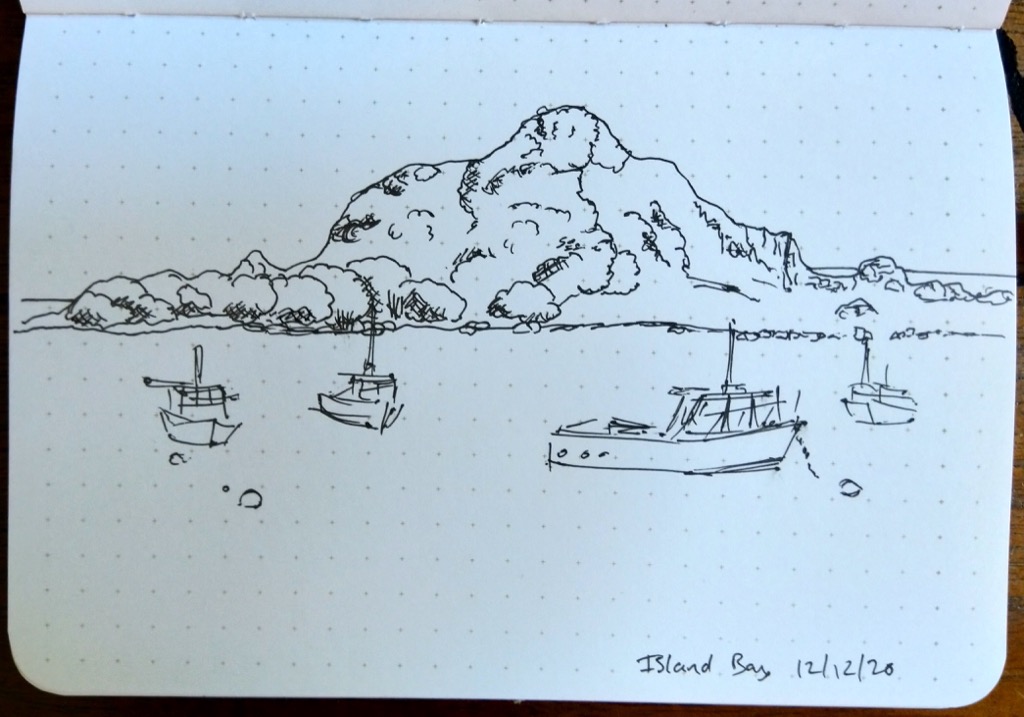 Island Bay 12/12/20